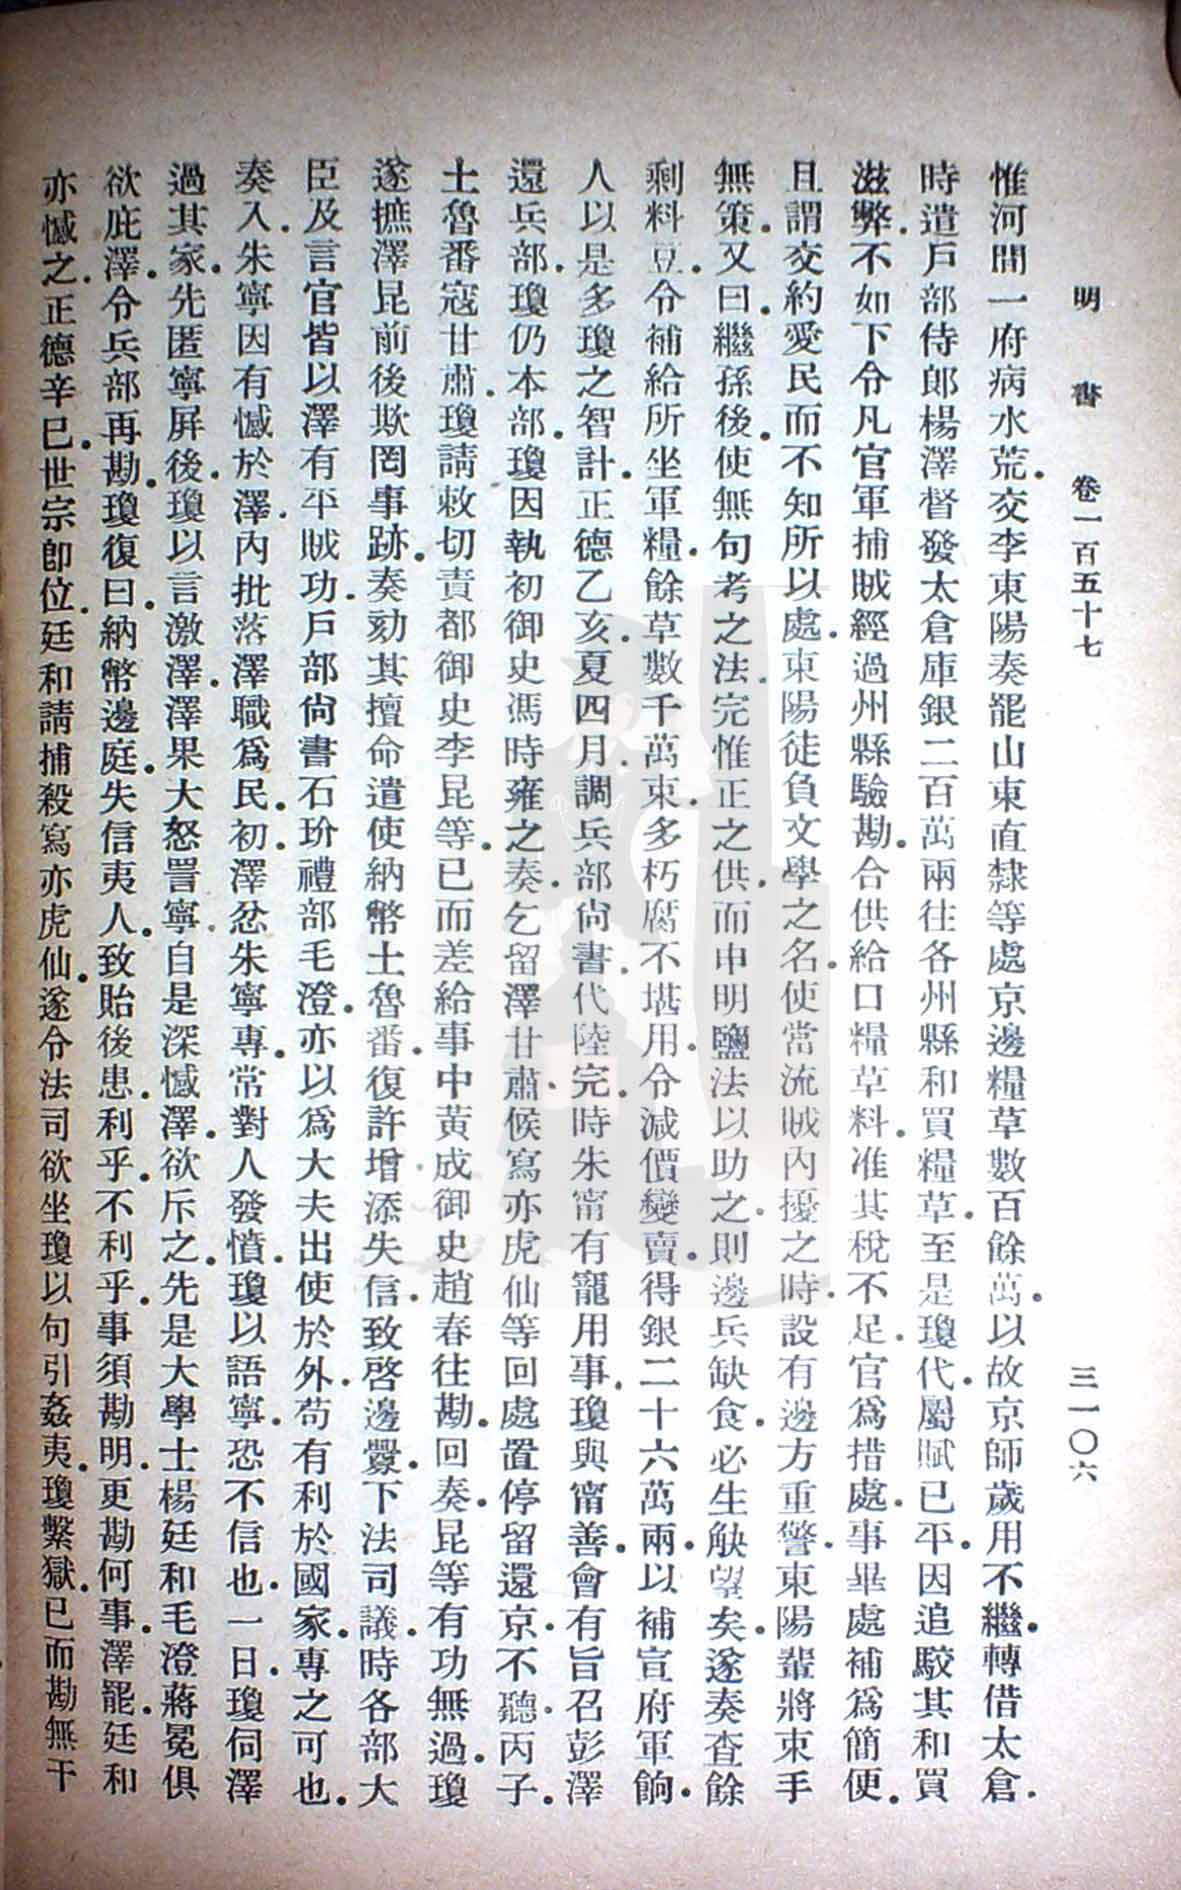 明書 卷一百五十七 三一〇六
惟河間一府病水荒.交李東陽奏罷山東直隸等處京邊糧草數百餘萬.以故京師歲用不繼.轉借太倉.
時遣戶部侍郎楊澤督發太倉庫銀二百萬兩往各州縣和買糧草.至是瓊代.屬賦已平.因追駁其和買
滋弊.不如下令凡官軍捕賊經過州縣驗勘.合供給口糧草料.准其稅不足.官為措處.事畢處補為簡便.
且謂交約愛民而不知所以處.東陽徒負文學之名.使當流賊內擾之時.設有邊方重警.東陽輩將束手
無策.又曰.繼孫後.使無句考之法.完惟正之供.而申明鹽法以助之.則邊兵缺食.必生觖望矣.遂奏查餘
剩料豆.令補給所坐軍糧.餘草數千萬束.多朽腐不堪用.令減價變賣.得銀二十六萬兩.以補宣府軍餉.
人以是多瓊之智計.正德乙亥.夏四月.調兵部尚書.代陸完.時朱甯有寵用事.瓊與甯善.會有旨召彭澤
還兵部.瓊仍本部.瓊因執初御史馮時雍之奏.乞留澤甘肅候寫亦虎仙等回處置停留還京.不聽.丙子.
土魯番寇甘肅.瓊請敕切責都御史李昆等.已而差給事中黃成御史趙春往勘.回奏.昆等有功無過.瓊
遂摭澤昆前後欺罔事跡.奏劾其擅命遣使納幣土魯番.復許增添失信.致啓邊釁.下法司議.時各部大
臣及言官皆以澤有平賊功.戶部尚書石玠禮部毛澄.亦以為大夫出使於外.苟有利於國家.專之可也.
奏入.朱寧因有憾於澤.內批落澤職為民.初.澤忿朱寧專.常對人發憤.瓊以語寧.恐不信也.一日.瓊伺澤
過其家.先匿寧屏後.瓊以言激澤.澤果大怒詈寧.自是深憾澤.欲斥之.先是大學士楊廷和毛澄蔣冕俱
欲庇澤.令兵部再勘.瓊復曰.納幣邊庭.失信夷人.致貽後患.利乎.不利乎.事須勘明.更勘何事.澤罷.廷和
亦憾之.正德辛巳.世宗即位.廷和請捕殺寫亦虎仙.遂令法司欲坐瓊以句引姦夷.瓊繫獄.已而勘無干